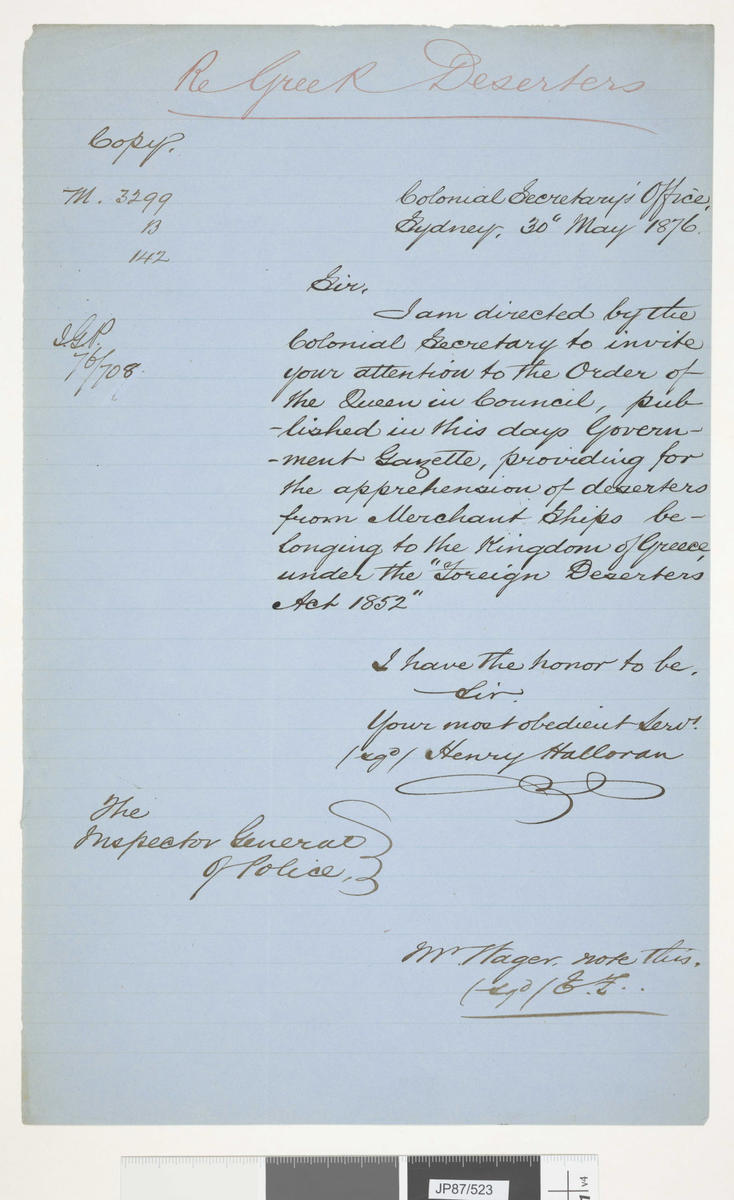 Re Greek Deserters
Copy.
M. 3299
B
142
Colonial Secretary's Office,
Sydney, 30" May 1876.
I.G.P.
76/708.
Sir,
I am directed by the
Colonial Secretary to invite
your attention to the Order of
the Queen in Council, pub-
-lished in this days Govern-
-ment Gazette, providing for
the apprehension of deserters
from Merchant Ships be-
longing to the Kingdom of Greece,
under the "Foreign Deserters
Act 1852"
I have the honor to be,
Sir.
Your most obedient Servt.
(sgd) Henry Halloran
The
Inspector General
Of Police,
Mr. Wager. note this.
(sgd) E. F..
JP87/523
V4